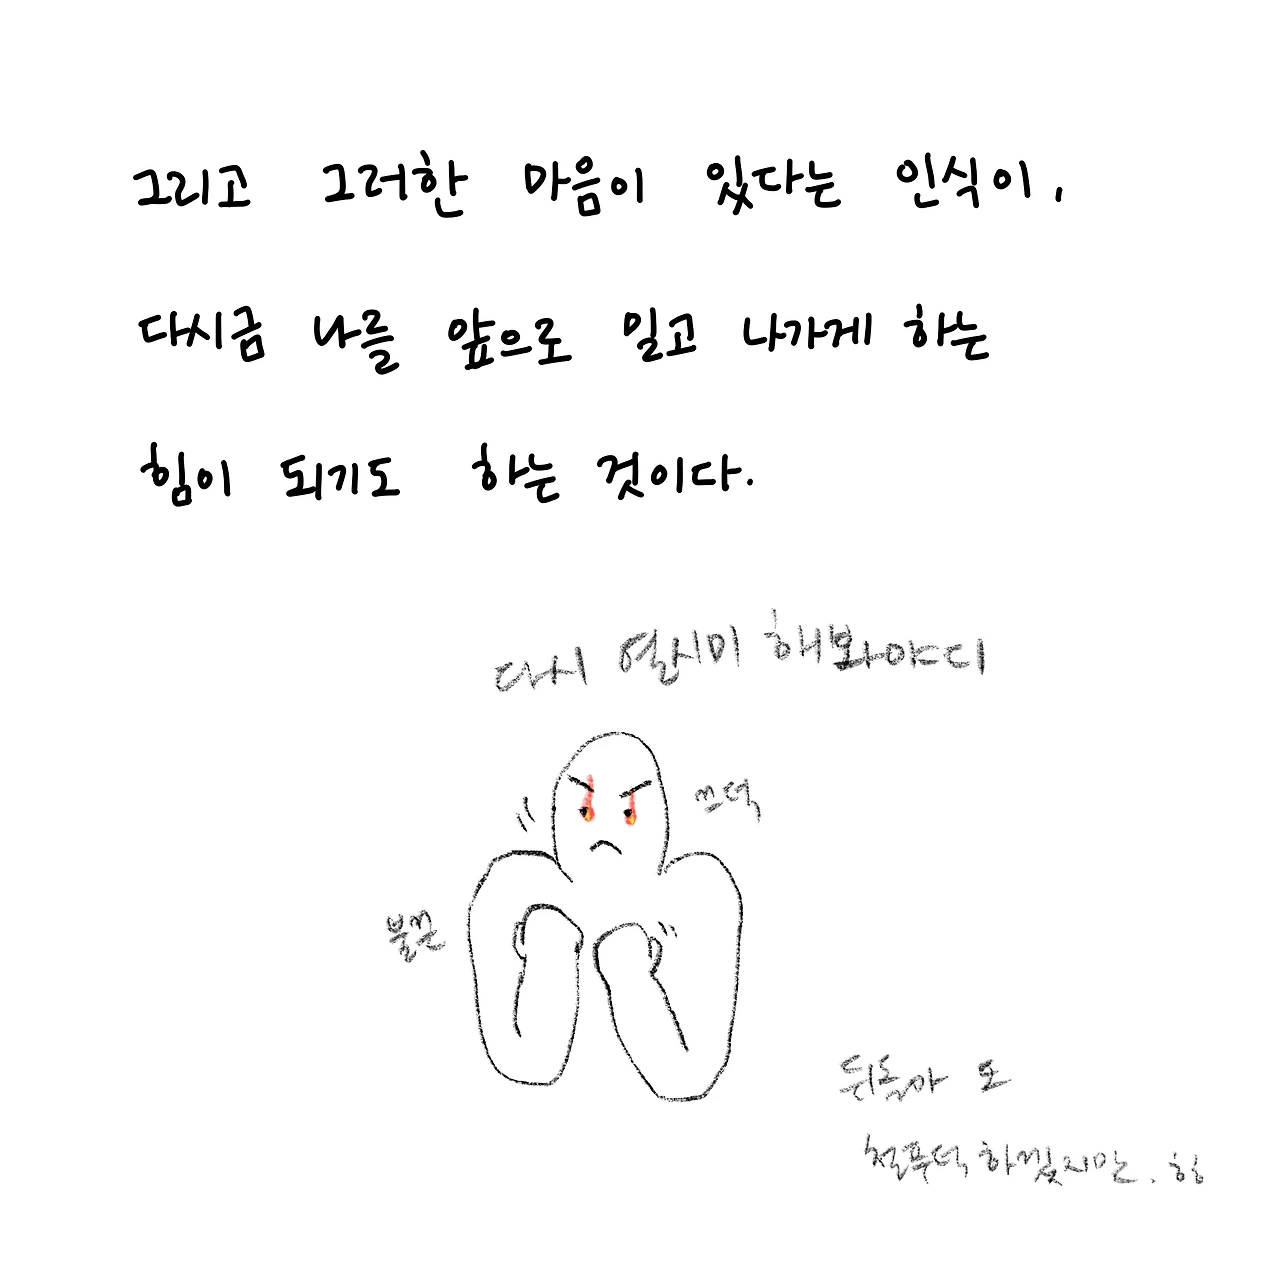 그리고 그러한 마음이 있다는 인식이,
다시금 나를 앞으로 밀고 나가게 하는
힘이 되기도 하는 것이다.
다시 열시미 해봐야ㅈ디
쓰덕
불끈
뒤돌아 또
철푸덕 하겠지만. 힝